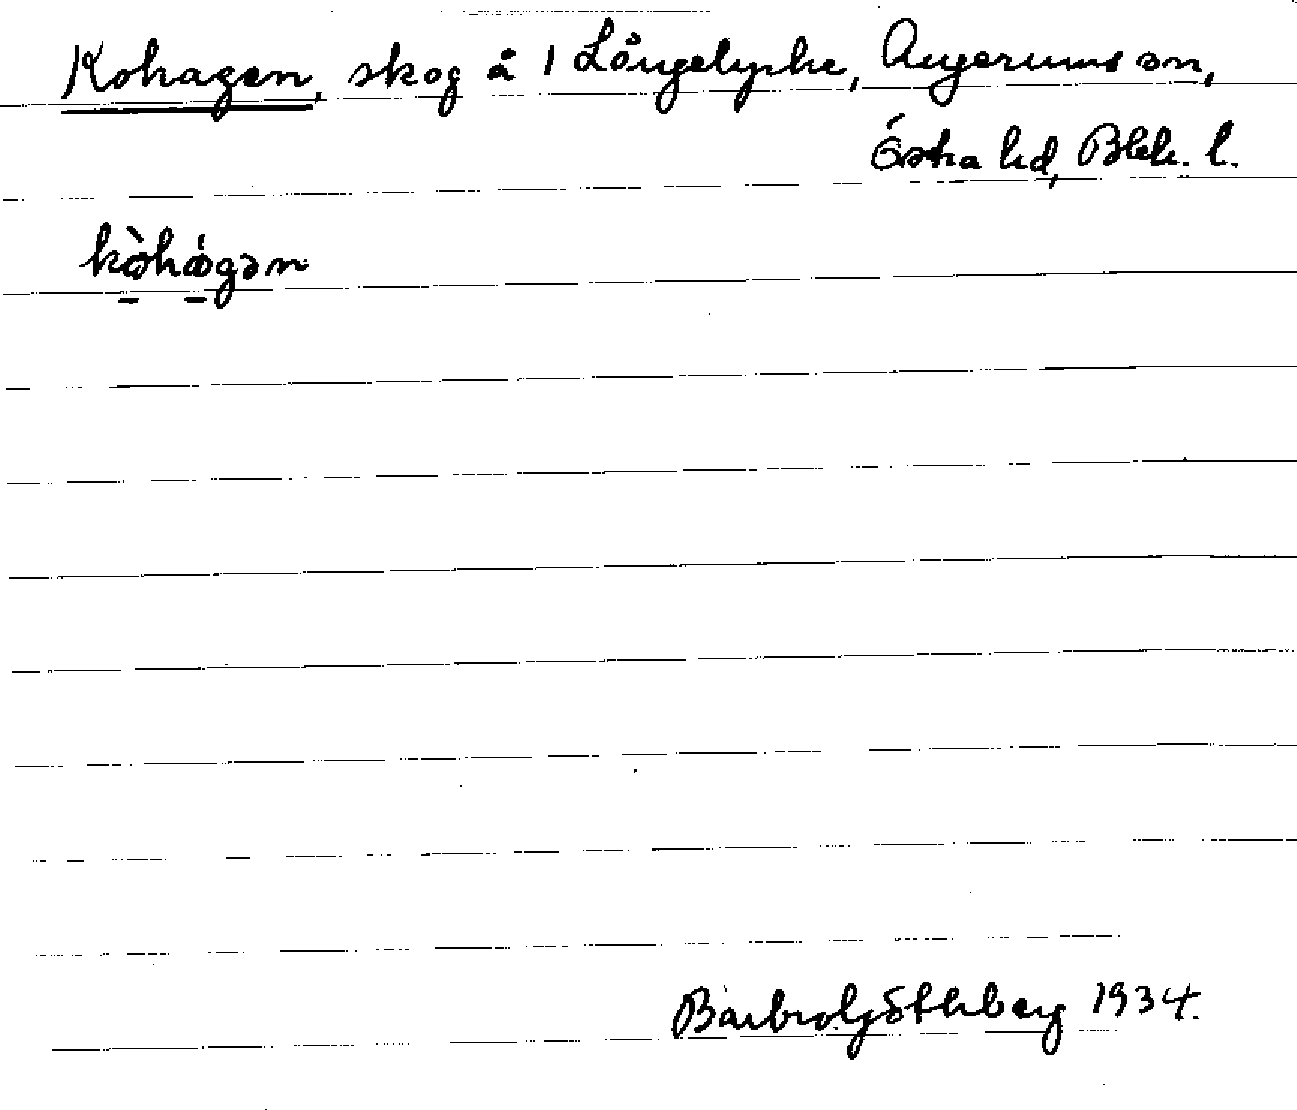 Kohagen, skog å 1 Långelycke, Augerums sn,
Östra hd, Blek. l.
kòhágən
Barbro Göthberg 1934.